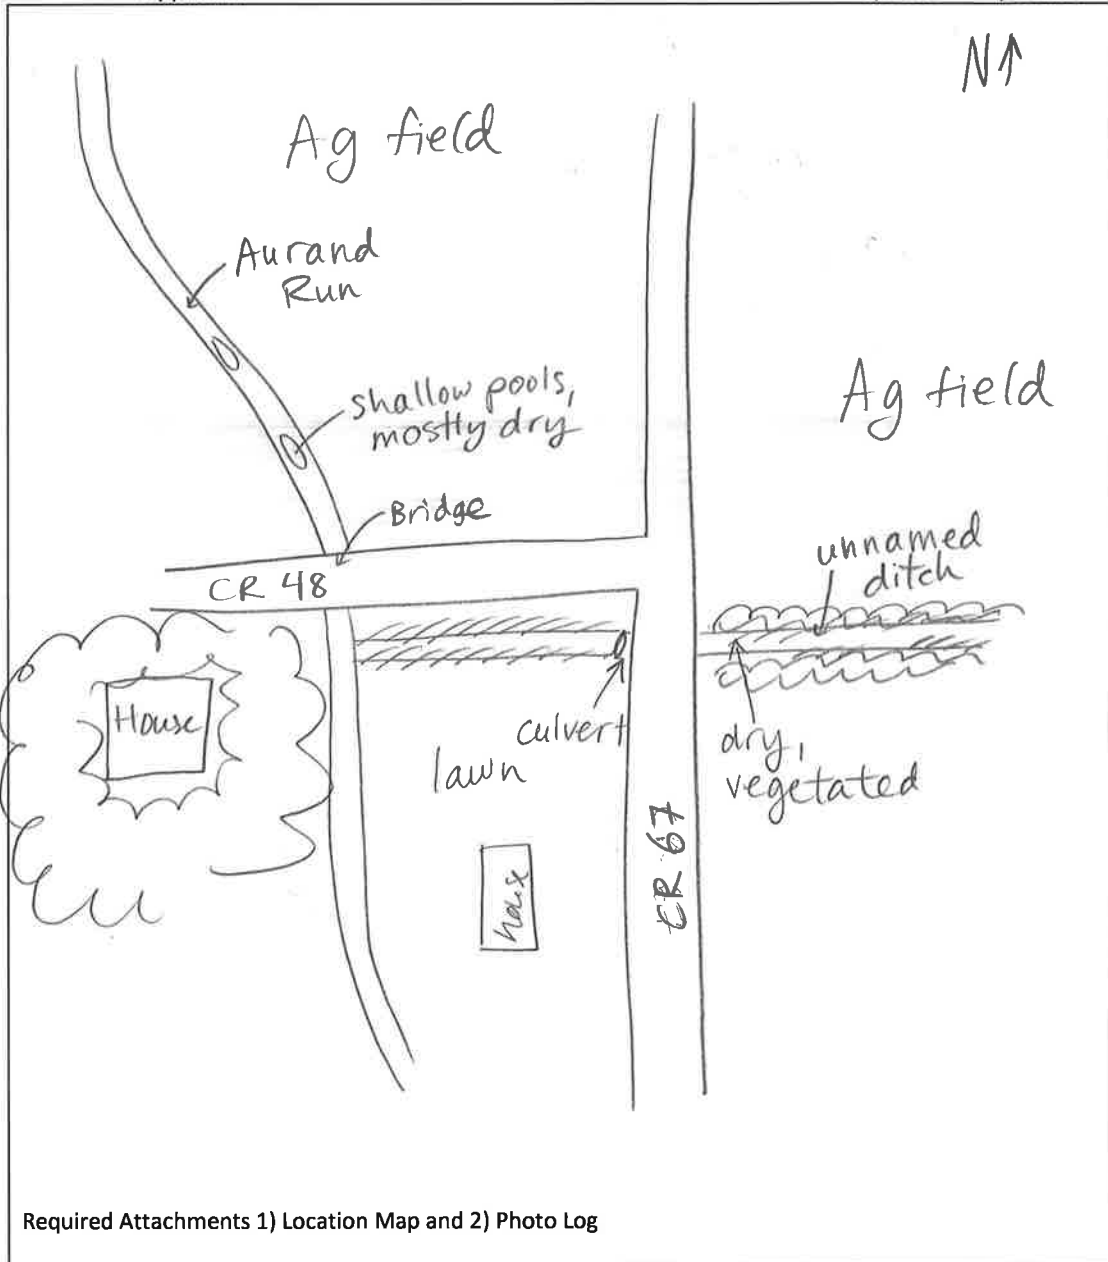 N↑
Ag field
Aurand
Run
Ag field
shallow pools,
mostly dry
Bridge
unnamed
ditch
CR 48
House
culvert
dry,
vegetated
lawn
CR 67
house
Required Attachments 1) Location Map and 2) Photo Log